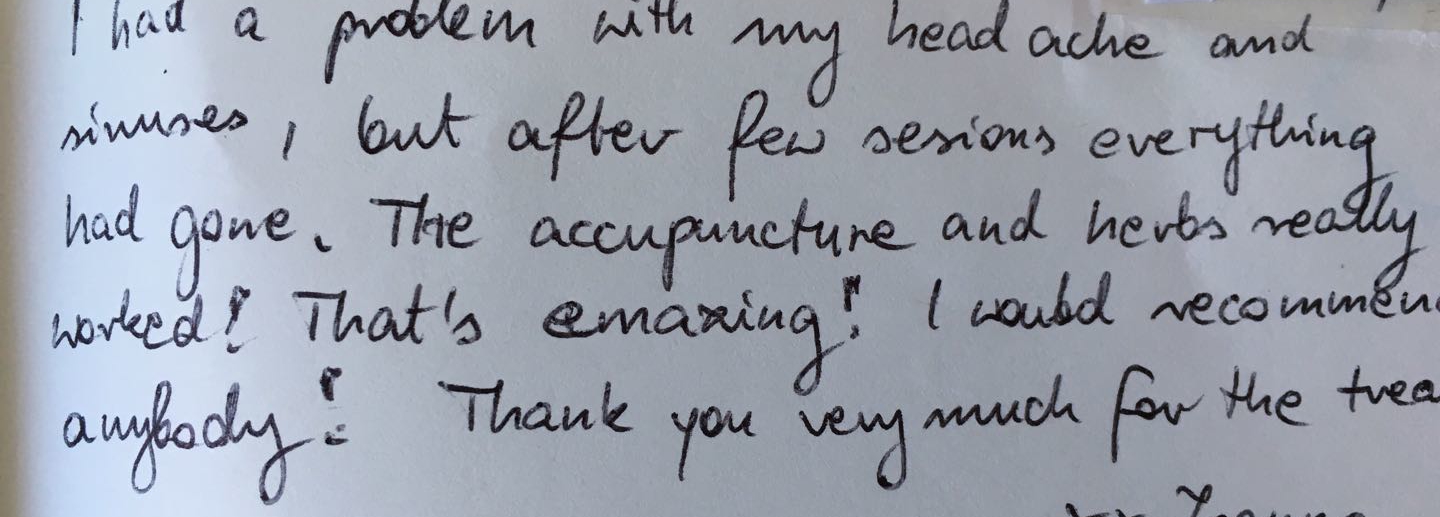 I had a problem with my head ache and
sinuses, but after few sesions everything
had gone. The accupuncture and herbs really
worked! That's emazing! I would recommen
anybody! Thank you very much for the trea